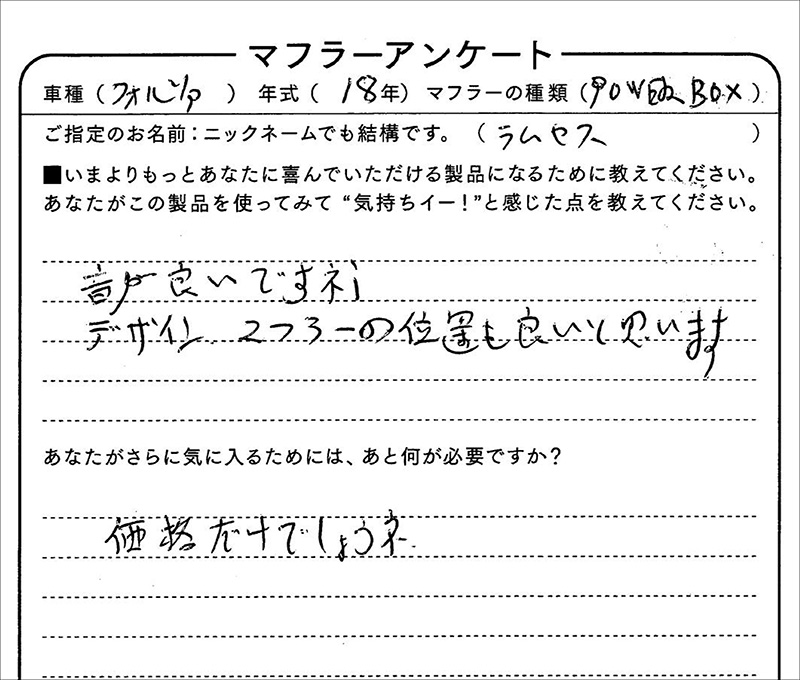 マフラーアンケート
車種（フォルツァ） 年式（18年）マフラーの種類（POWER BOX）
ご指定のお名前：ニックネームでも結構です。（ラムセス）
■いまよりもっとあなたに喜んでいただける製品になるために教えてください。
あなたがこの製品を使ってみて“気持ちイー！”と感じた点を教えてください。
音が良いですネ！
デザイン、マフラーの位置も良いと思います
あなたがさらに気に入るためには、あと何が必要ですか？
価格だけでしょうネ．